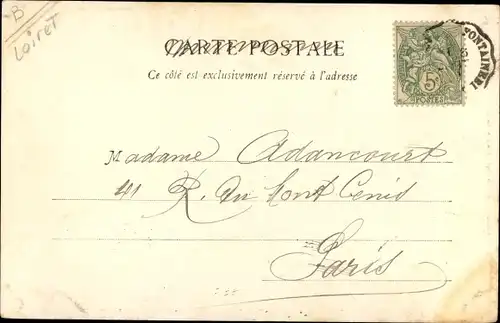 B
Loiret
CARTE POSTALE
Ce côté est exclusivement réservé à l'adresse
5c
POSTES
FONTAINEBL
Madame Adancourt
41 R. Du Mont Cenis
Paris